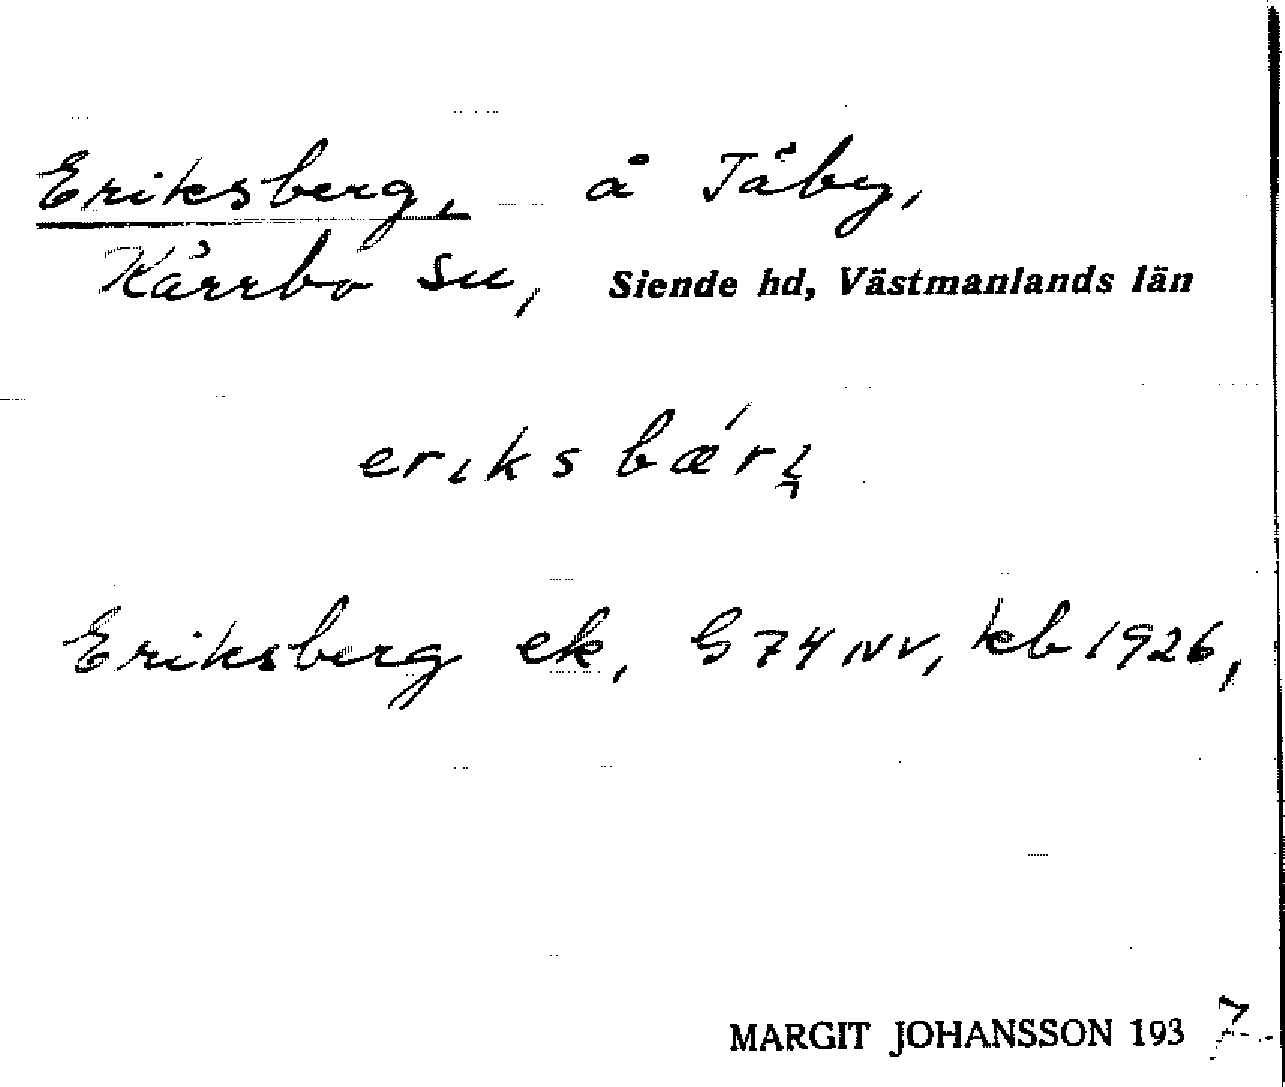 Eriksberg, å Täby,
Kärrbo sn, Siende hd, Västmanlands län
eriksbær
Eriksberg ek, G 74 NV, kb 1926,
MARGIT JOHANSSON 1937